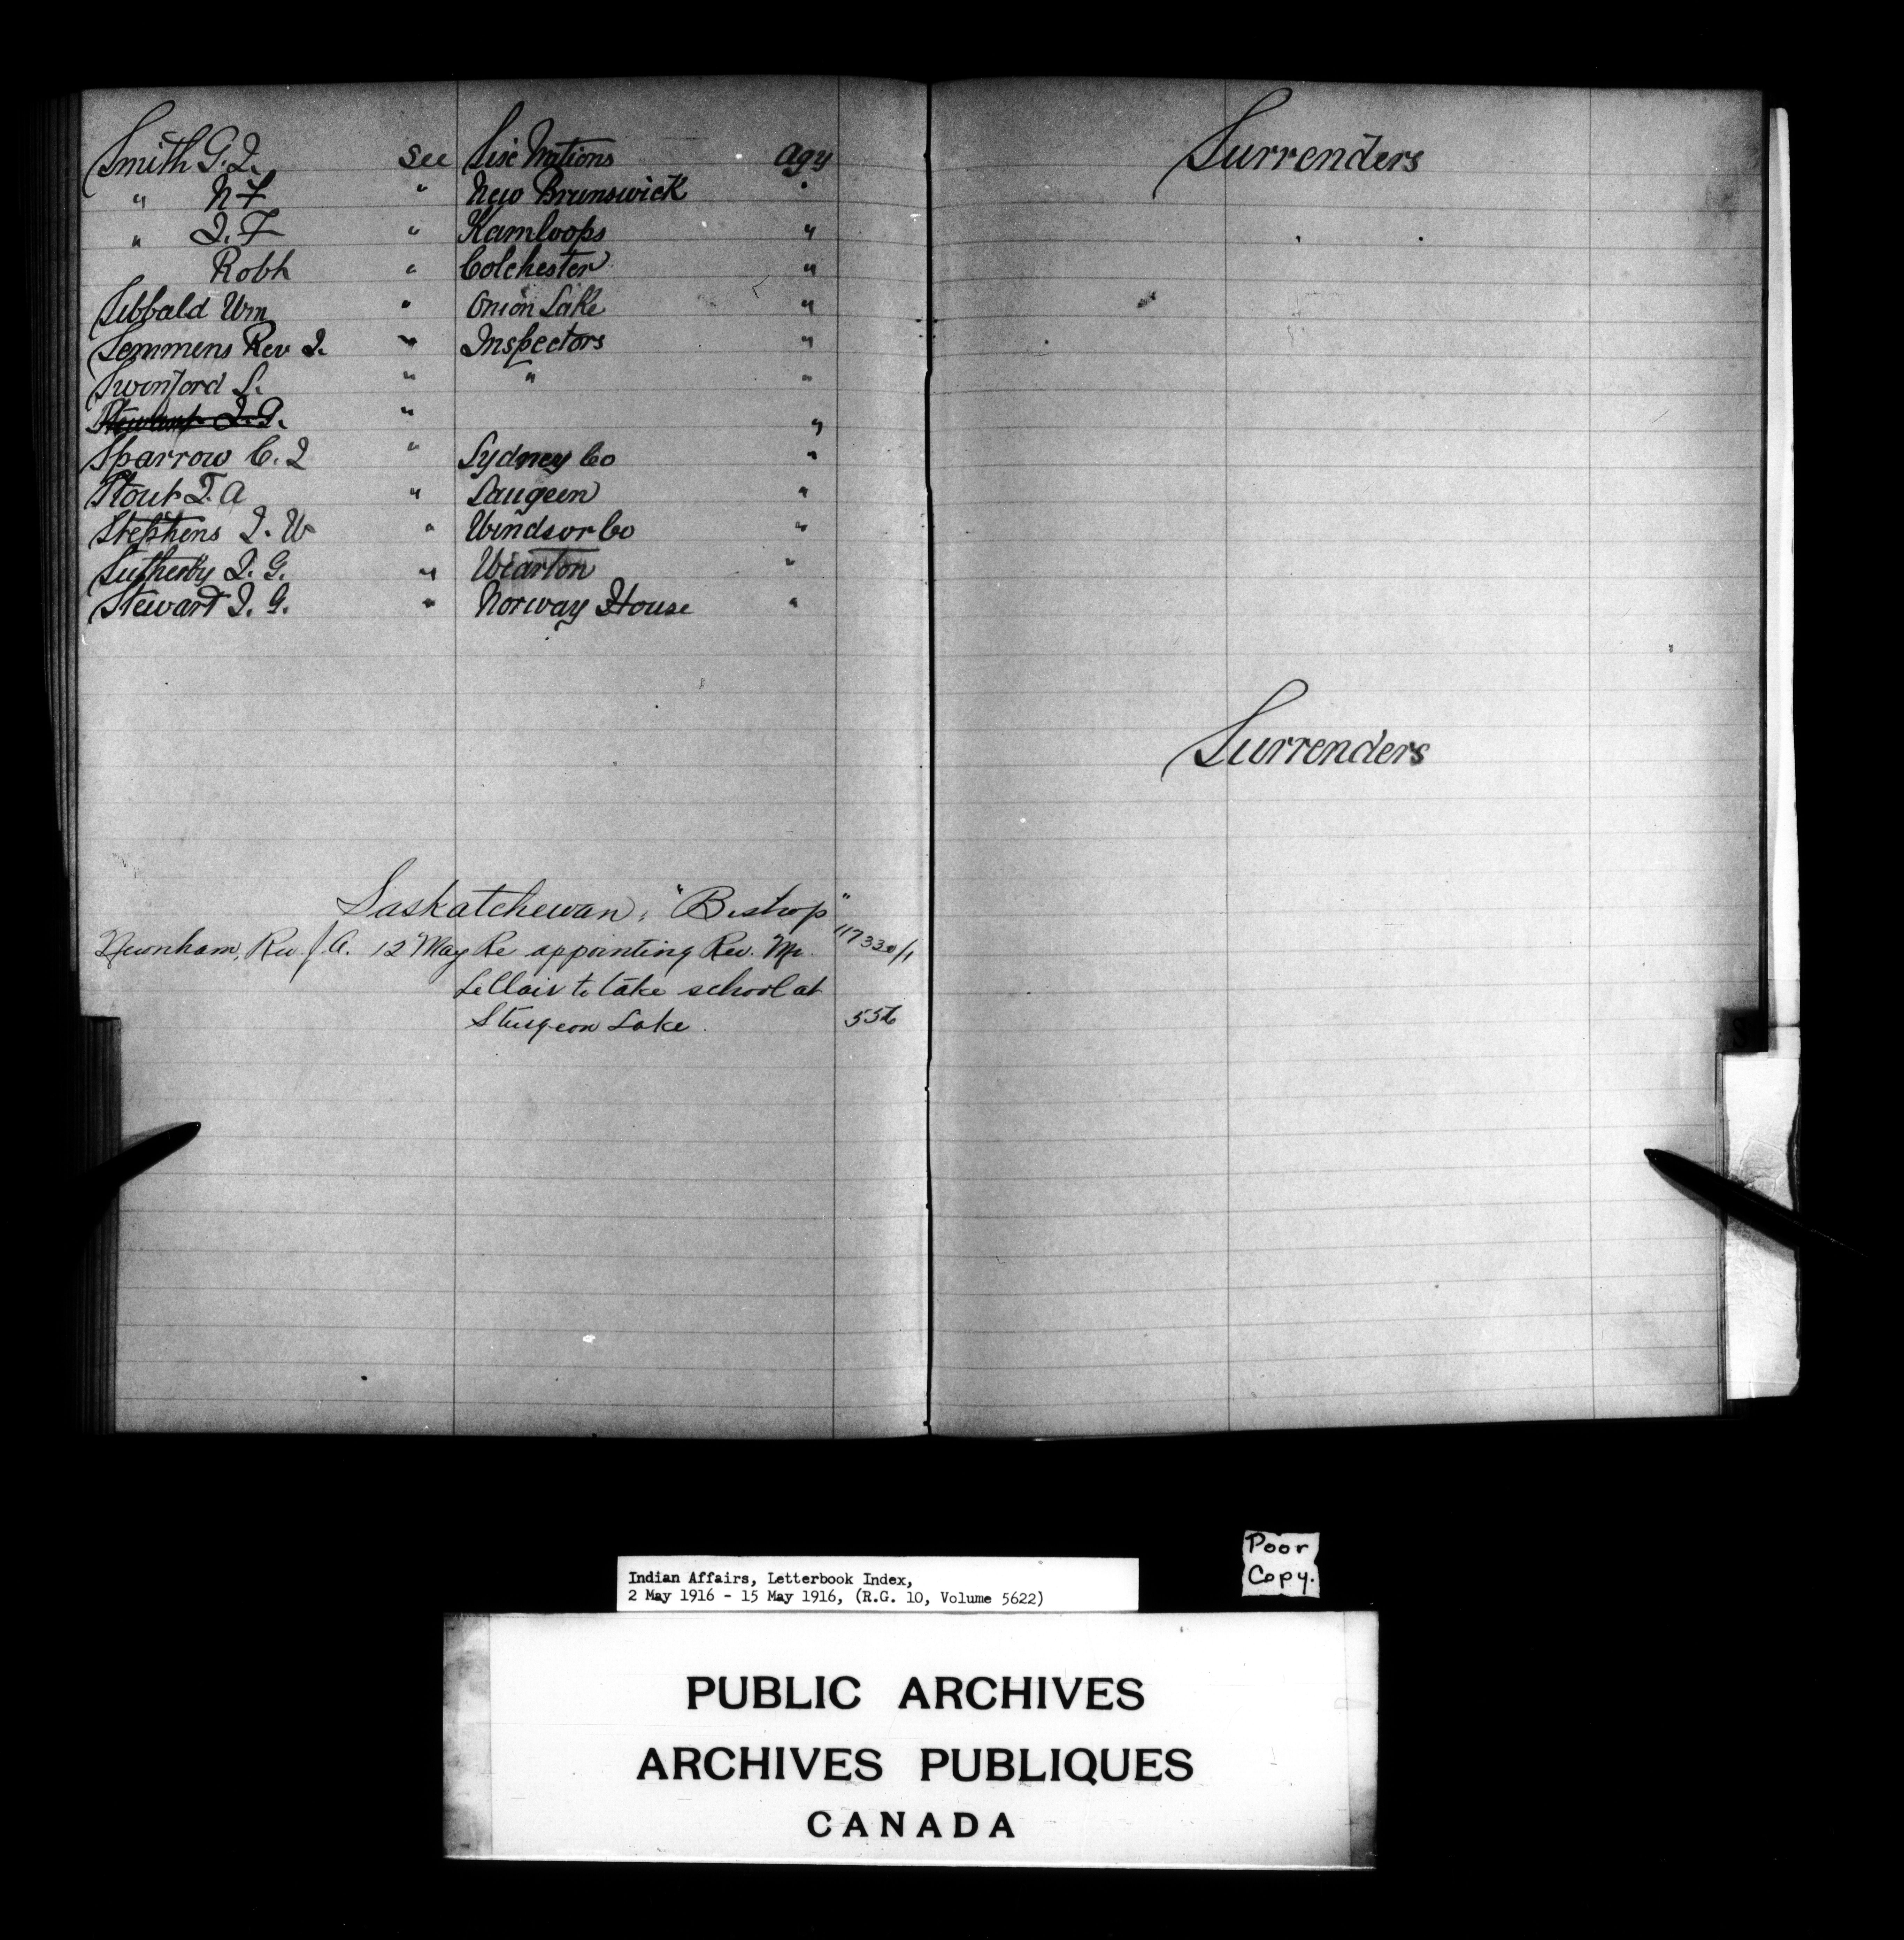 Smith G. J. See Six Nations Agy
" N F " New Brunswick "
" J. F " Kamloops "
Robt " Colchester "
Sibbald Wm " Onion Lake "
Semmens Rev J. " Inspectors "
Swinford S. " " "
Stewart J. G. " "
Sparrow C. J " Sydney Co "
Stout T. A " Saugeen "
Stephens J. W " Windsor Co "
Sutherby J. G. " Wiarton "
Stewart J. G. " Norway House "
Saskatchewan, "Bishop"
Newnham, Rev. J. A. 12 May Re appointing Rev. Mr. 117330/1
LeClair to take school at
Sturgeon Lake. 556
Surrenders
Surrenders
S
Poor
Copy.
Indian Affairs, Letterbook Index,
2 May 1916 - 15 May 1916, (R.G. 10, Volume 5622)
PUBLIC ARCHIVES
ARCHIVES PUBLIQUES
CANADA